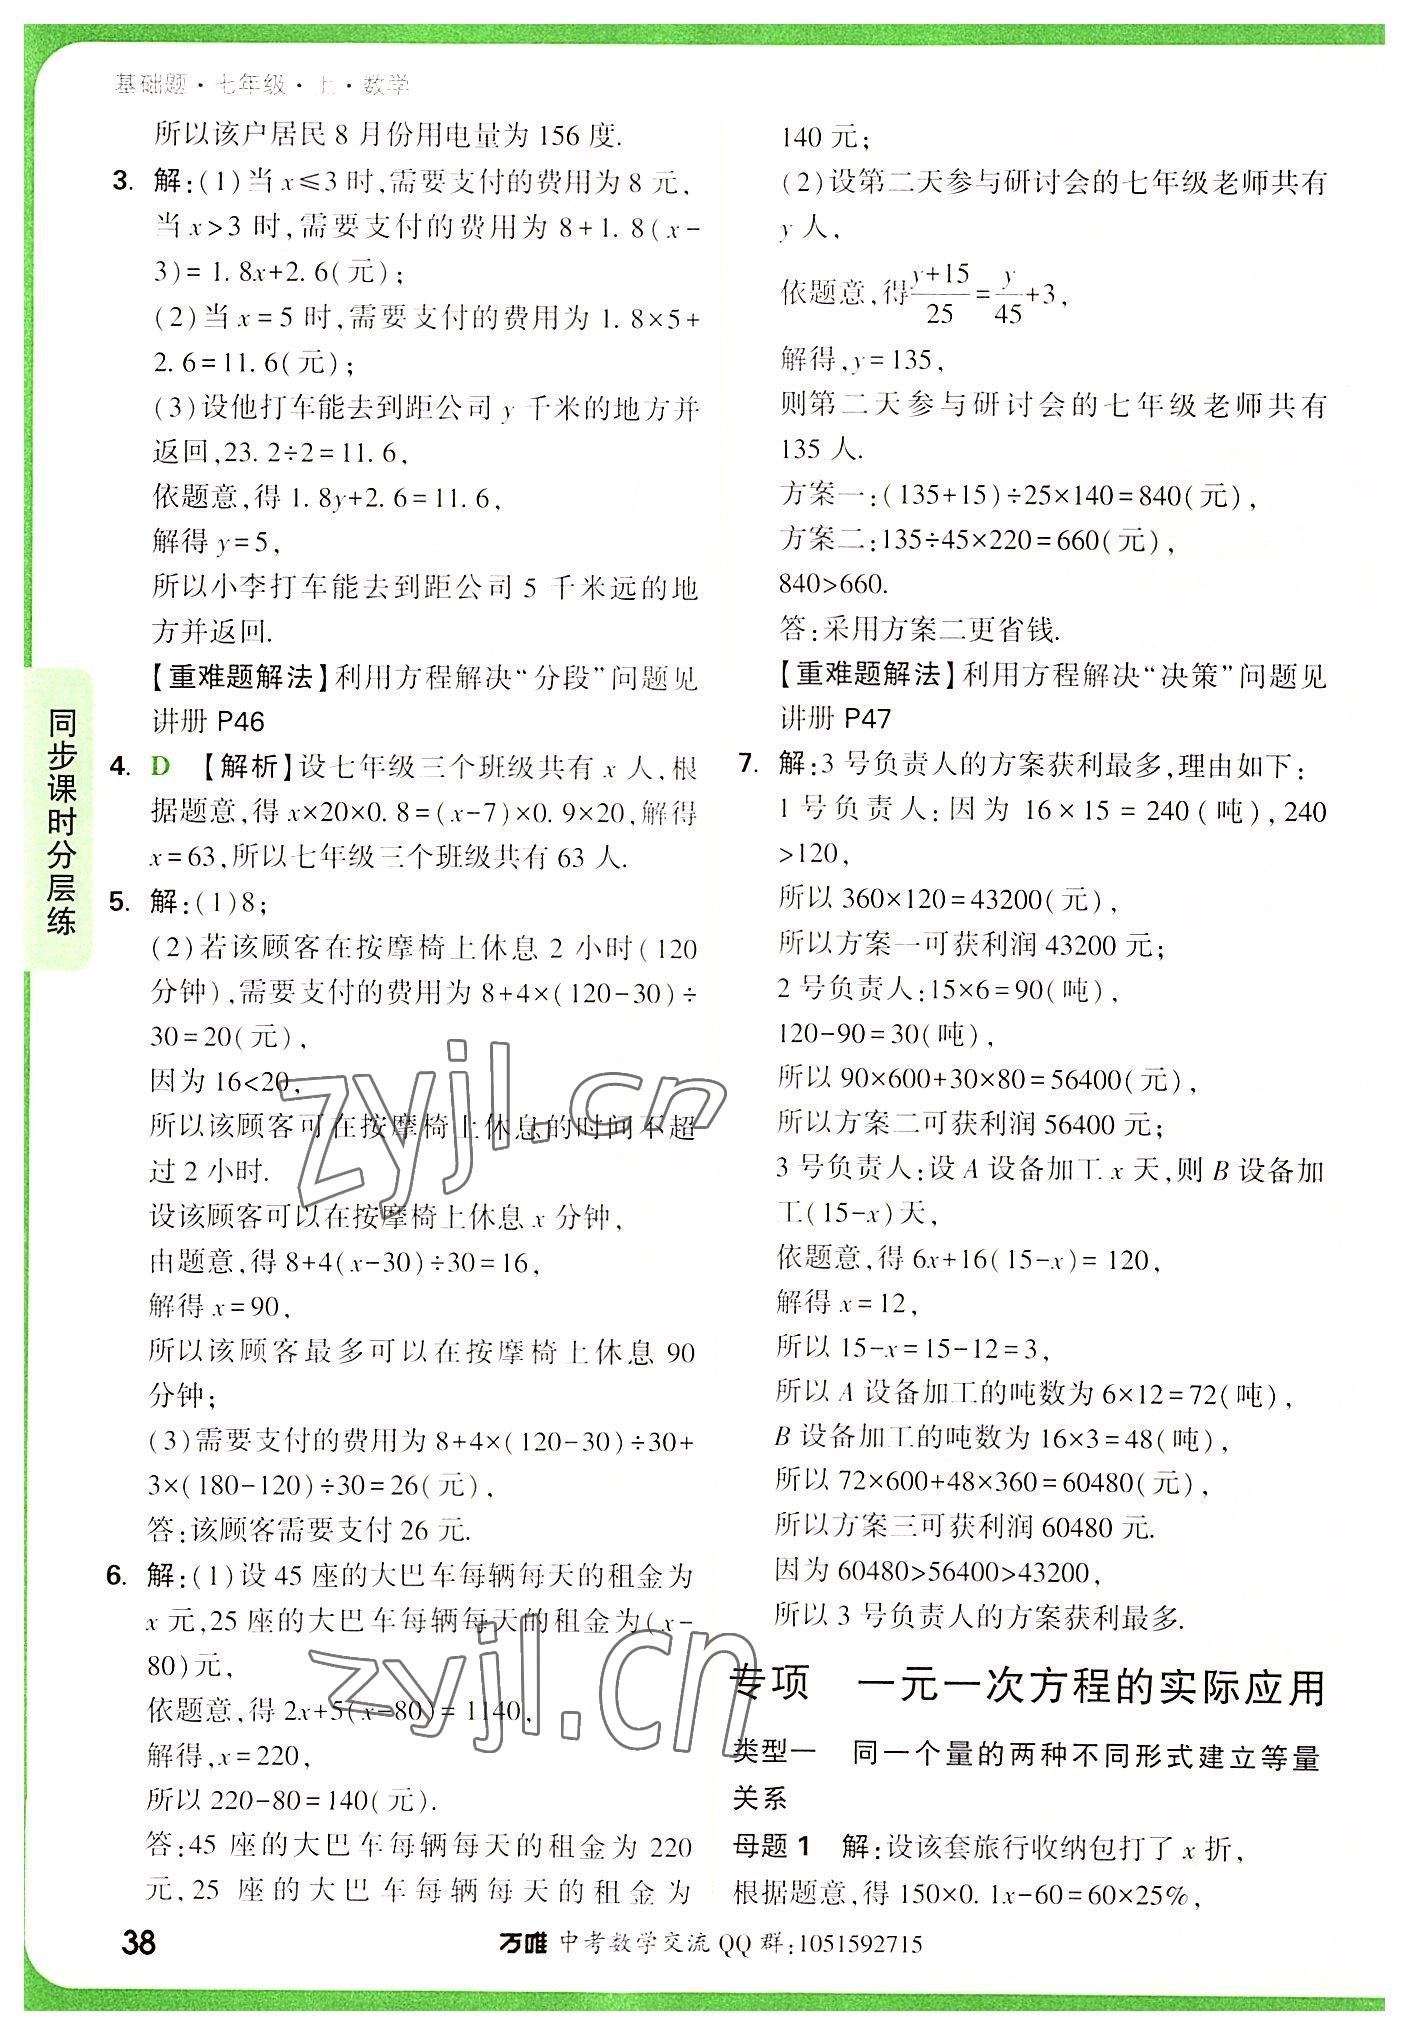 基础题·七年级·上·数学
所以该户居民 8 月份用电量为 156 度.
3. 解:(1)当 x≤3 时,需要支付的费用为 8 元,
当 x>3 时,需要支付的费用为 8+1.8(x-
3)=1.8x+2.6(元);
(2)当 x=5 时,需要支付的费用为 1.8×5+
2.6=11.6(元);
(3)设他打车能去到距公司 y 千米的地方并
返回,23.2÷2=11.6,
依题意,得 1.8y+2.6=11.6,
解得 y=5,
所以小李打车能去到距公司 5 千米远的地
方并返回.
【重难题解法】利用方程解决“分段”问题见
讲册 P46
4. D 【解析】设七年级三个班级共有 x 人,根
据题意,得 x×20×0.8=(x-7)×0.9×20,解得
x=63,所以七年级三个班级共有 63 人.
5. 解:(1)8;
(2)若该顾客在按摩椅上休息 2 小时(120
分钟),需要支付的费用为 8+4×(120-30)÷
30=20(元),
因为 16<20,
所以该顾客可在按摩椅上休息的时间不超
过 2 小时.
设该顾客可以在按摩椅上休息 x 分钟,
由题意,得 8+4(x-30)÷30=16,
解得 x=90,
所以该顾客最多可以在按摩椅上休息 90
分钟;
(3)需要支付的费用为 8+4×(120-30)÷30+
3×(180-120)÷30=26(元),
答:该顾客需要支付 26 元.
6. 解:(1)设 45 座的大巴车每辆每天的租金为
x 元,25 座的大巴车每辆每天的租金为(x-
80)元,
依题意,得 2x+5(x-80)=1140,
解得,x=220,
所以 220-80=140(元).
答:45 座的大巴车每辆每天的租金为 220
元,25 座的大巴车每辆每天的租金为
140 元;
(2)设第二天参与研讨会的七年级老师共有
y 人,
依题意,得 (y+15)/25=y/45+3,
解得,y=135,
则第二天参与研讨会的七年级老师共有
135 人.
方案一:(135+15)÷25×140=840(元),
方案二:135÷45×220=660(元),
840>660.
答:采用方案二更省钱.
【重难题解法】利用方程解决“决策”问题见
讲册 P47
7. 解:3 号负责人的方案获利最多,理由如下:
1 号负责人:因为 16×15=240(吨),240
>120,
所以 360×120=43200(元),
所以方案一可获利润 43200 元;
2 号负责人:15×6=90(吨),
120-90=30(吨),
所以 90×600+30×80=56400(元),
所以方案二可获利润 56400 元;
3 号负责人:设 A 设备加工 x 天,则 B 设备加
工(15-x)天,
依题意,得 6x+16(15-x)=120,
解得 x=12,
所以 15-x=15-12=3,
所以 A 设备加工的吨数为 6×12=72(吨),
B 设备加工的吨数为 16×3=48(吨),
所以 72×600+48×360=60480(元),
所以方案三可获利润 60480 元.
因为 60480>56400>43200,
所以 3 号负责人的方案获利最多.
专项 一元一次方程的实际应用
类型一 同一个量的两种不同形式建立等量
关系
母题 1 解:设该套旅行收纳包打了 x 折,
根据题意,得 150×0.1x-60=60×25%,
同步课时分层练
38
万唯 中考数学交流 QQ 群:1051592715
zyjl.cn
zyjl.cn